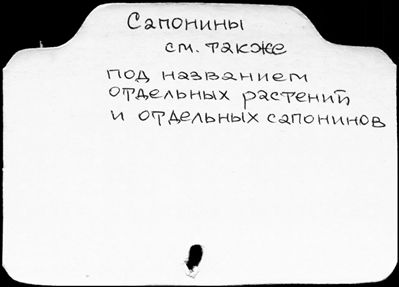 Сапонины
см. также
под названием
отдельных растений
и отдельных сапонинов